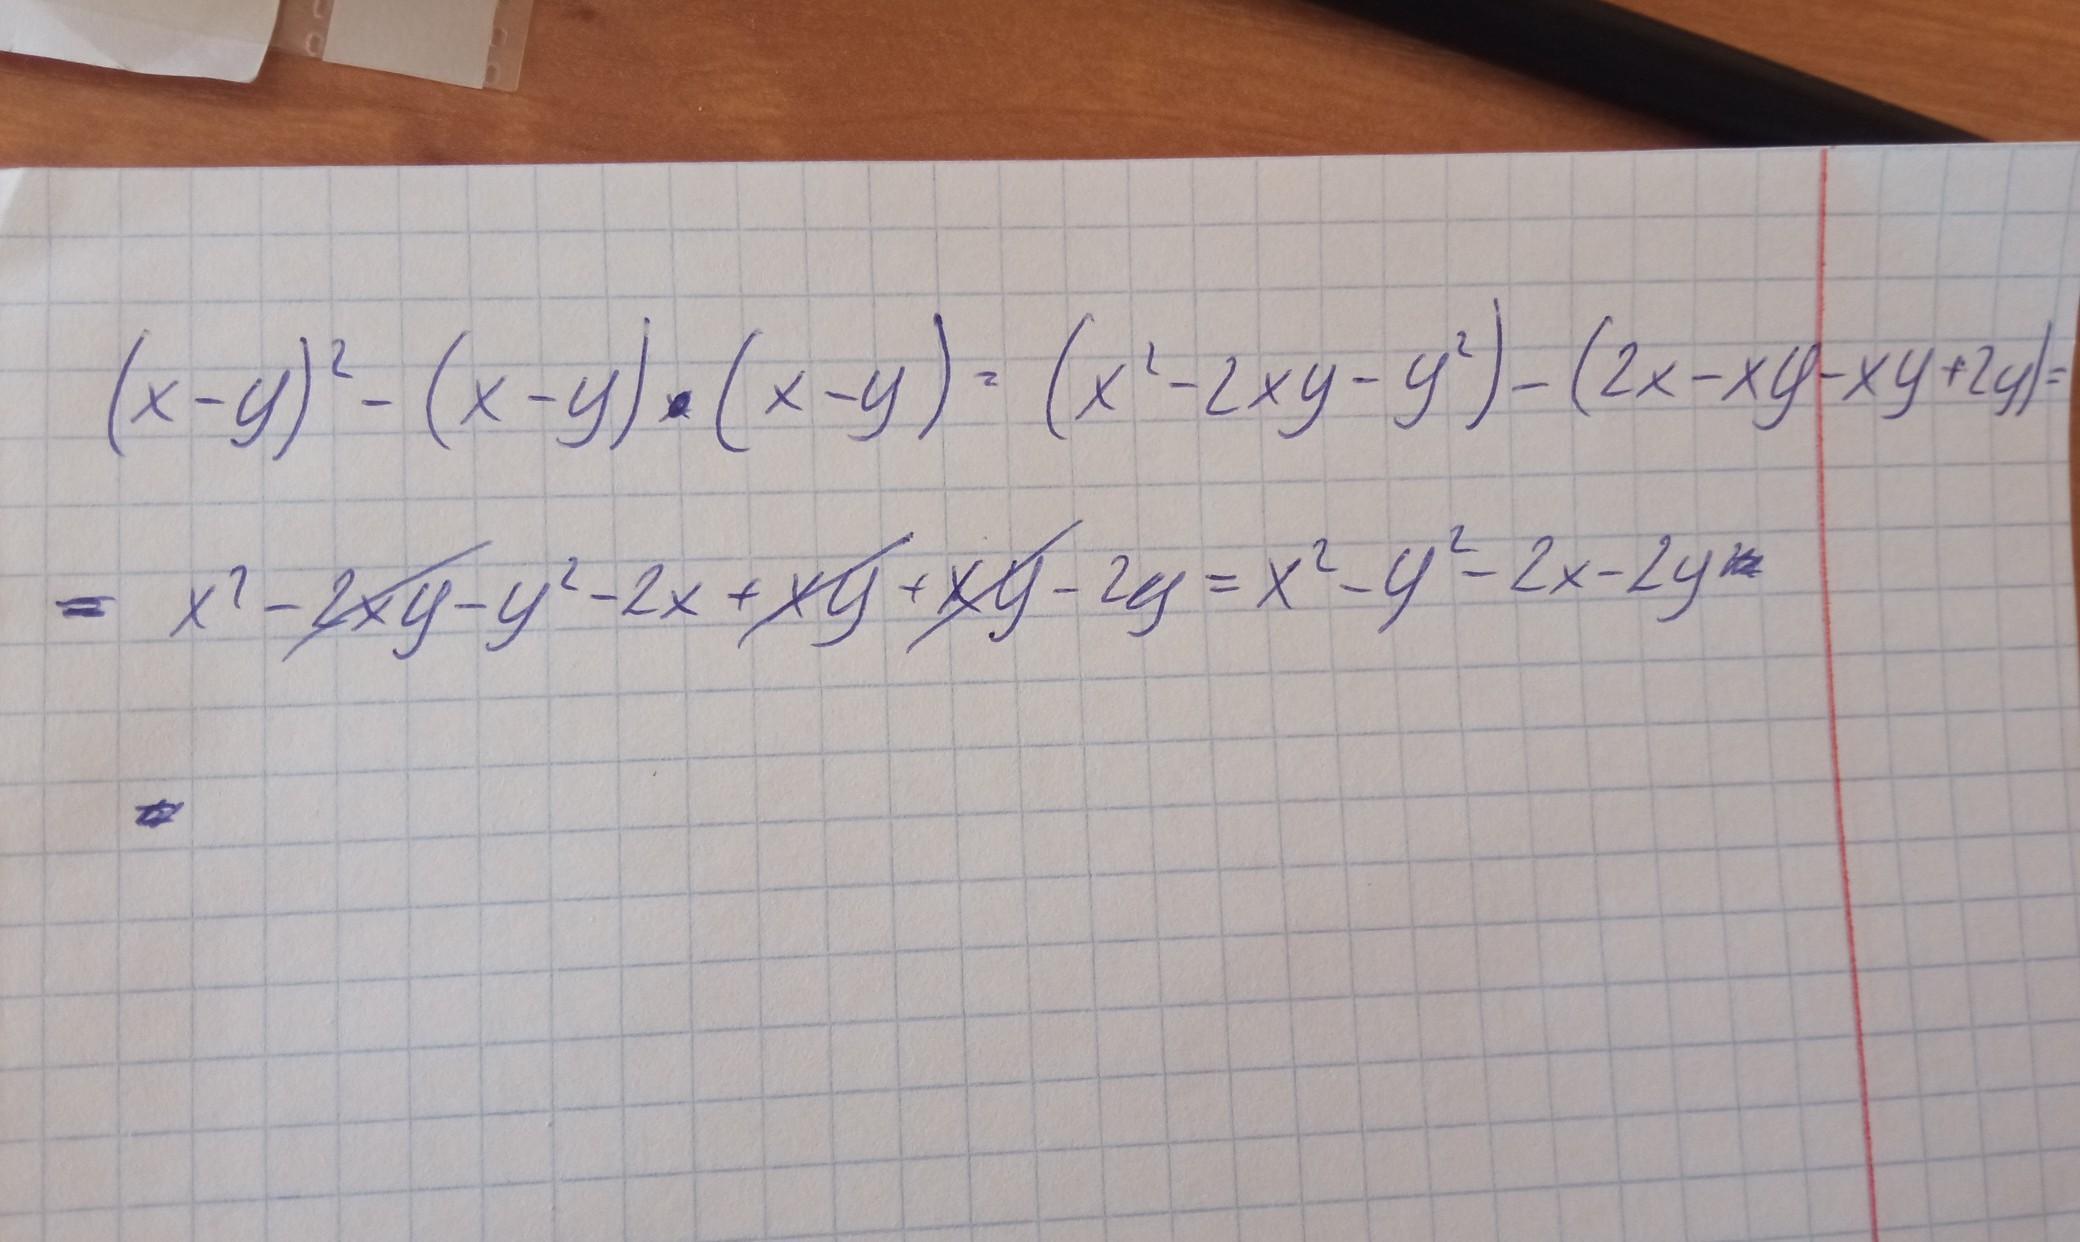 (x-y)² - (x-y) · (x-y) = (x² - 2xy - y²) - (2x - xy - xy + 2y) =
= x² - 2xy - y² - 2x + xy + xy - 2y = x² - y² - 2x - 2y